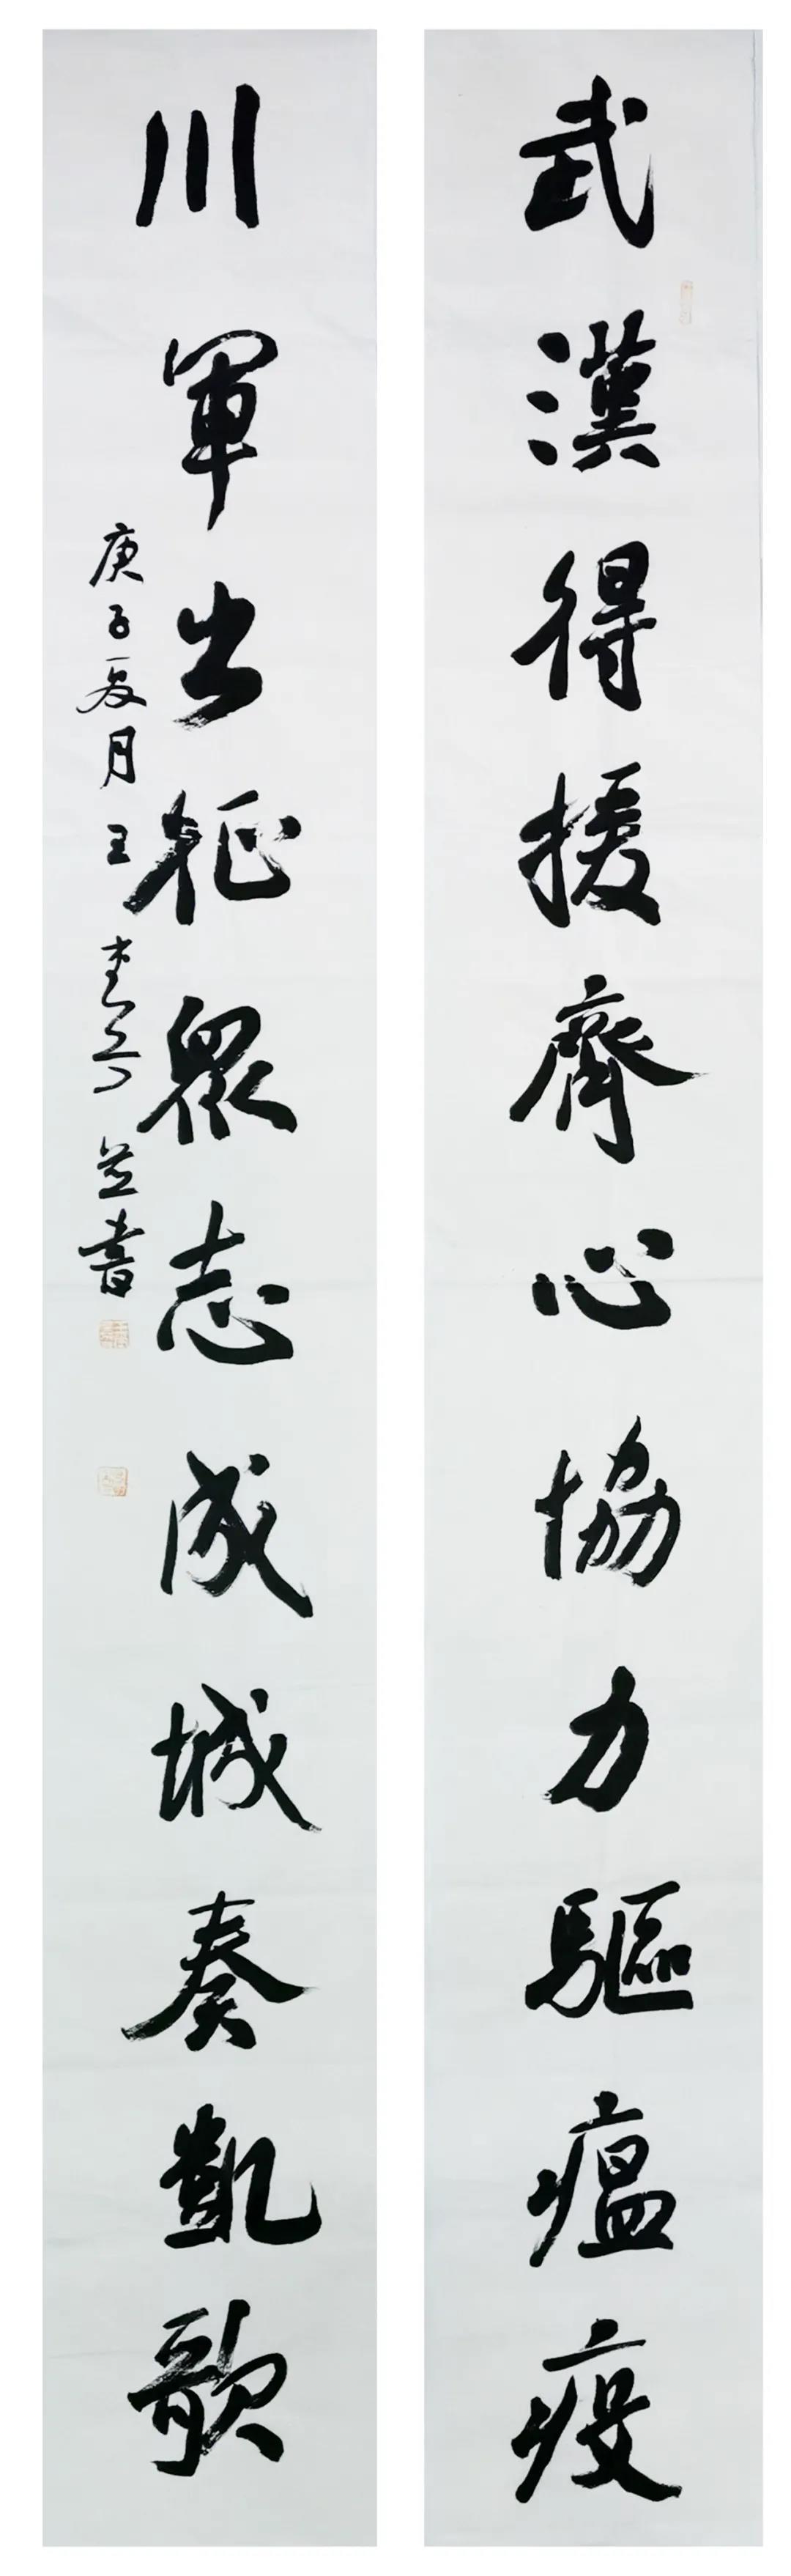 武漢得援齊心協力驅瘟疫
川軍出征眾志成城奏凱歌
庚子夏月王 並書